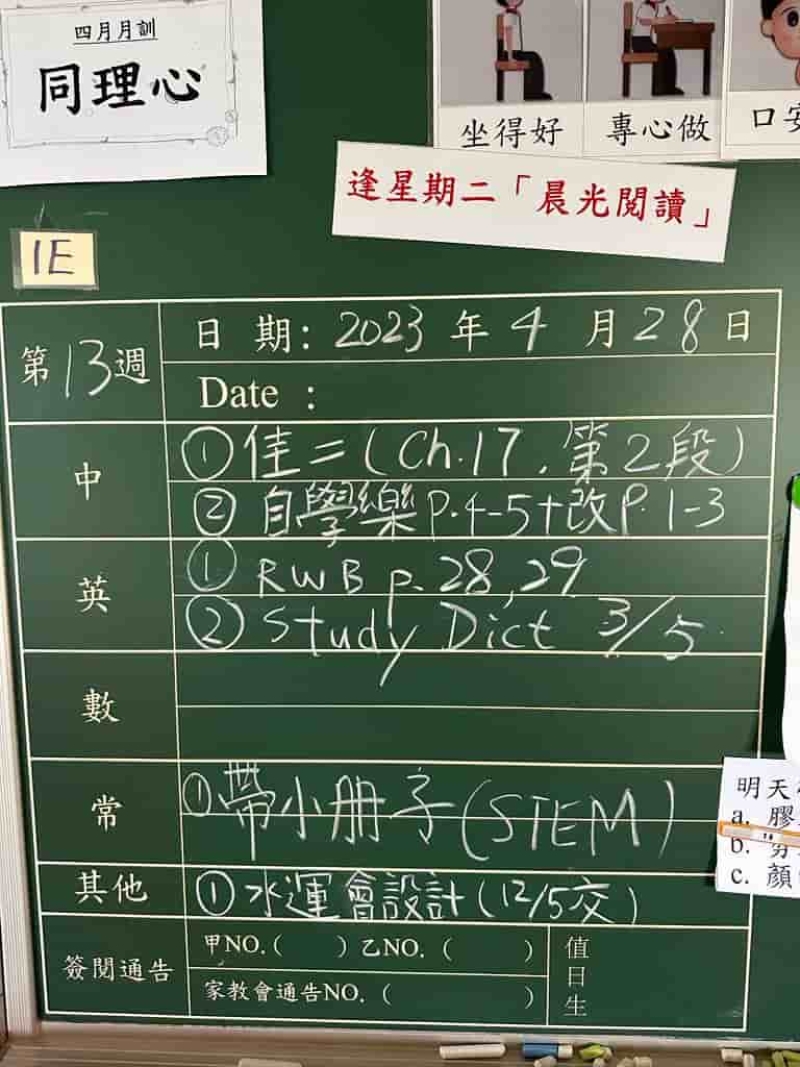 四月月訓
同理心
坐得好
專心做
口安
逢星期二「晨光閱讀」
1E
第13週
日期: 2023年4月28日
Date :
中
①佳二(Ch.17,第2段)
②自學樂P.4-5+改P.1-3
英
①RWB p.28,29
②Study Dict 3/5
數
常
①帶小冊子(STEM)
其他
①水運會設計(12/5交)
簽閱通告
甲NO.( )乙NO.( )
家教會通告NO.( )
值日生
明天
a. 膠
b.
c. 顏